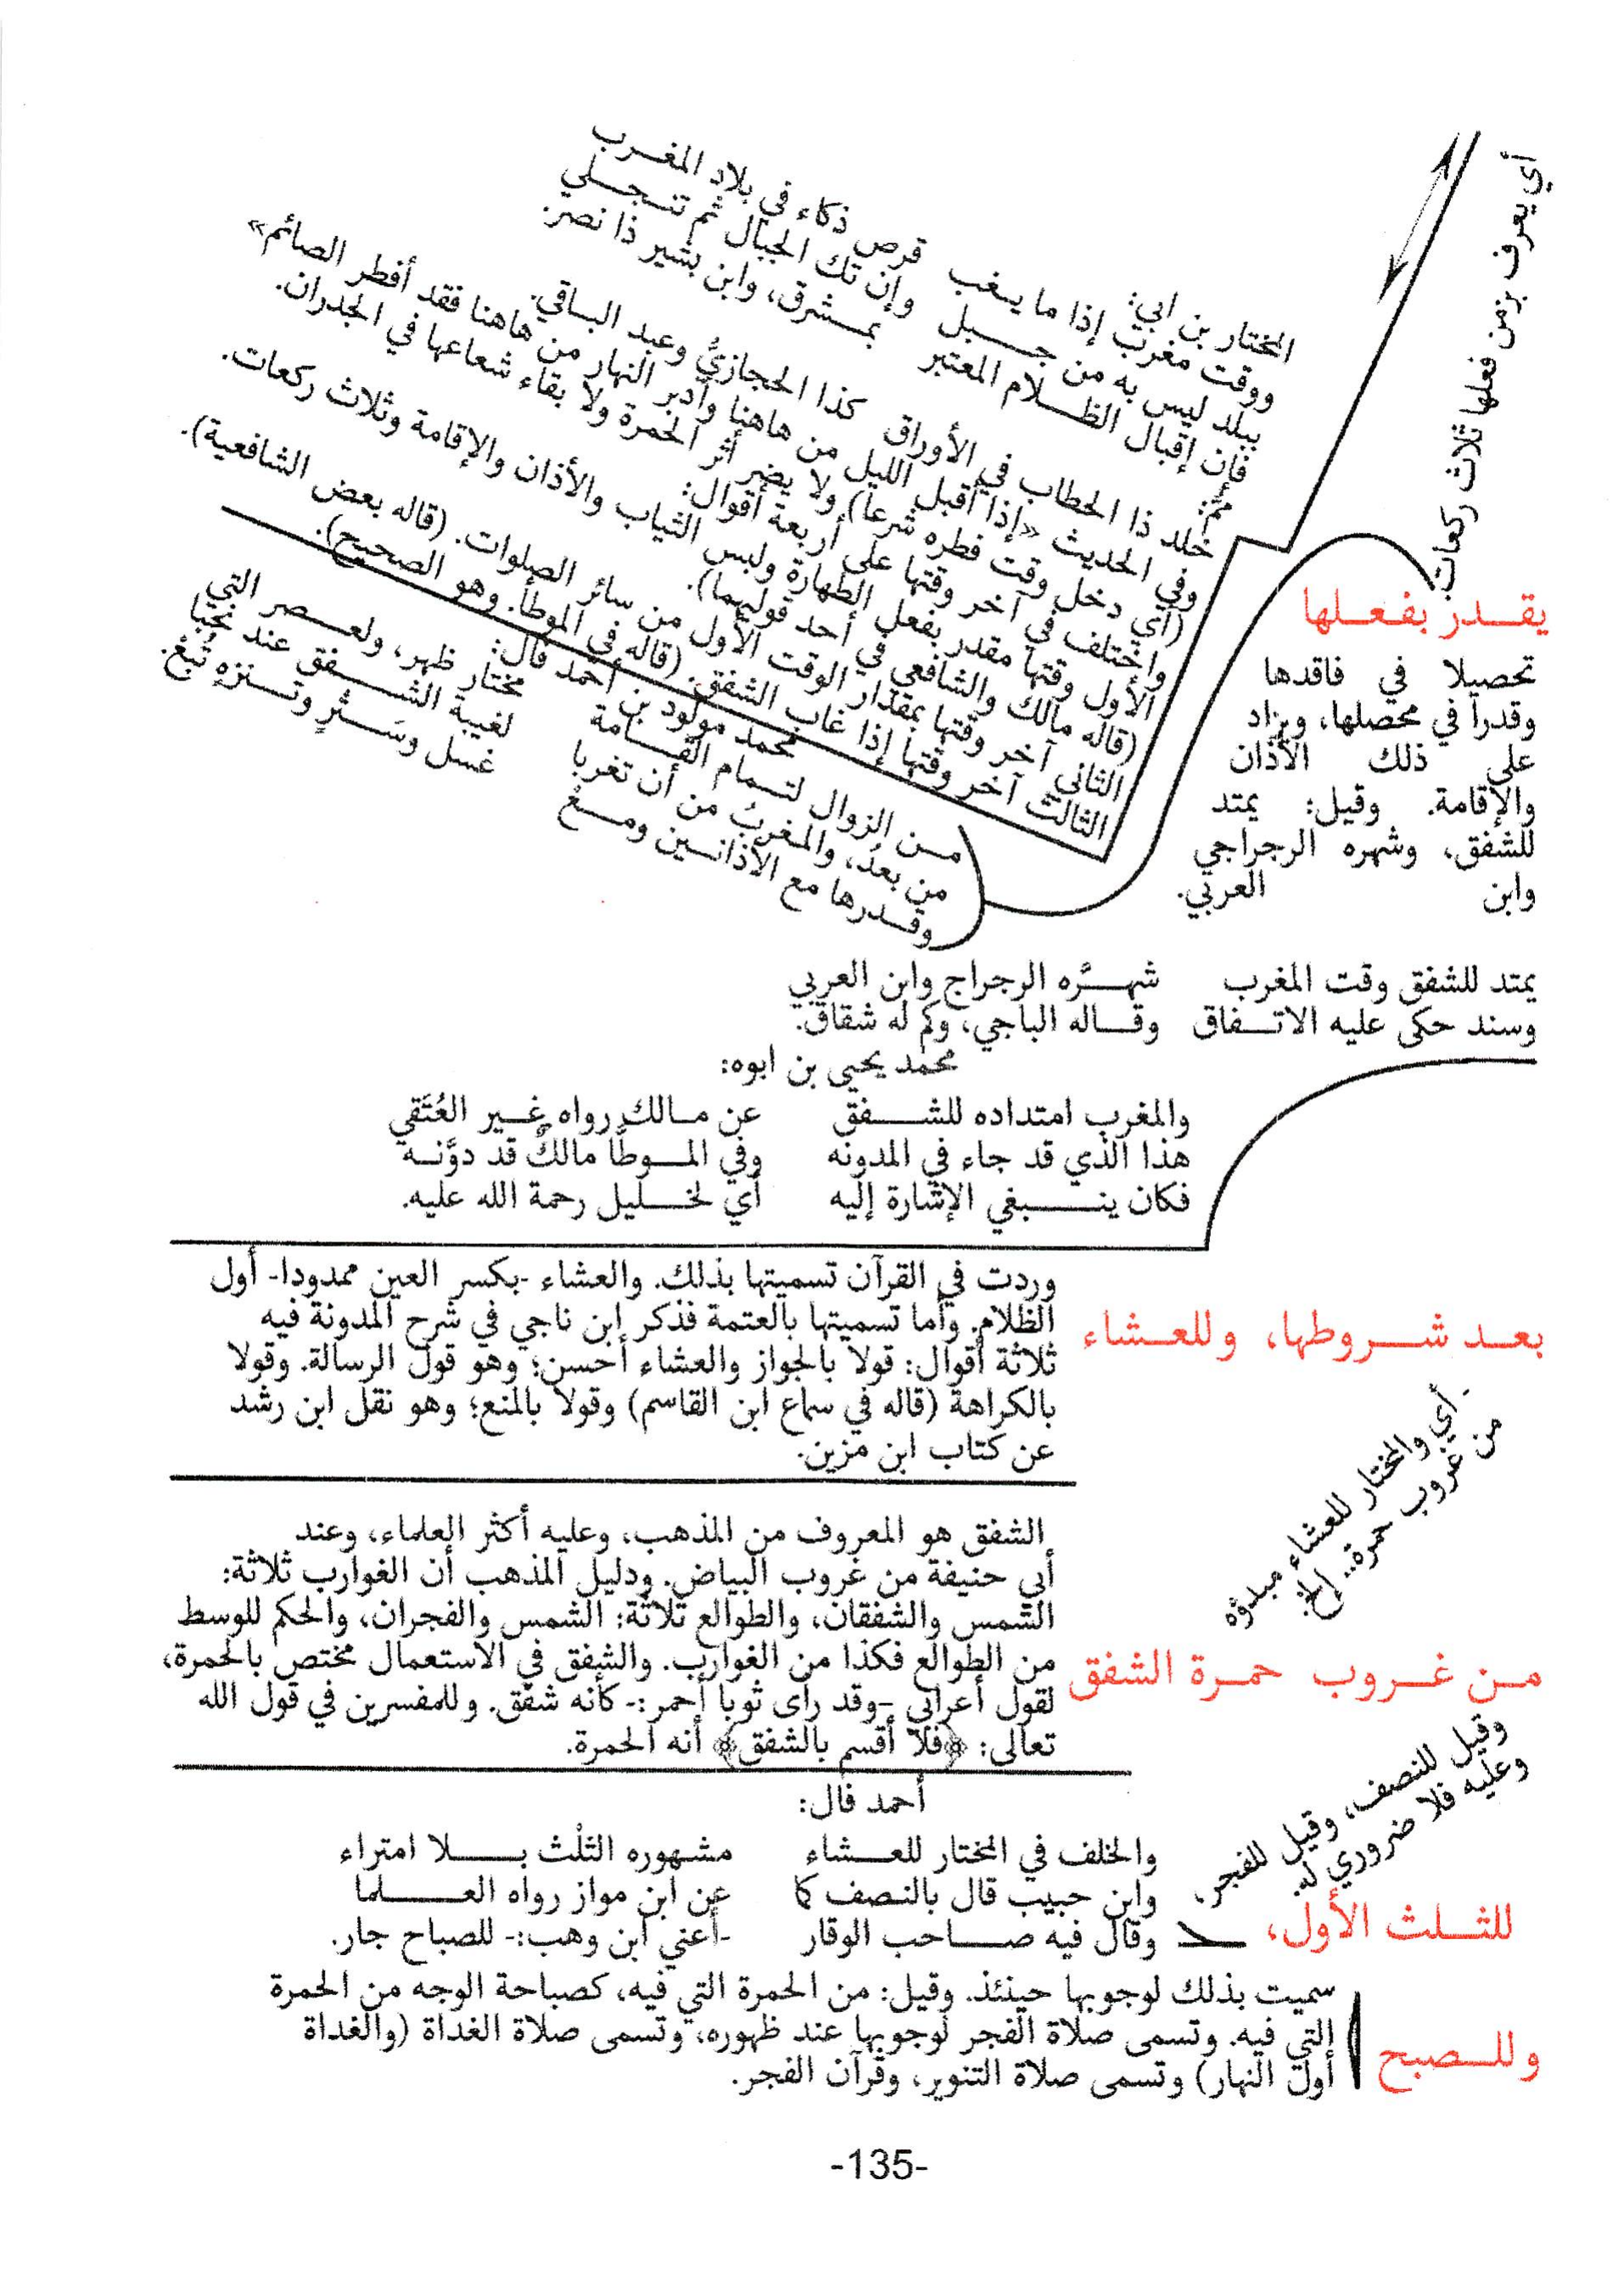 أي يعرف بزمن فعلها ثلاث ركعات.
المختار بن ابي:
ووقت مغرب إذا ما يغب قرص ذكاء في بلاد المغرب
ببلد ليس به من جبل وإن تك الجبال ثم تنجلي
فإن إقبال الظلام المعتبر بمشرق، وابن بشير ذا نصر.
ثم:
خلد ذا الحطاب في الأوراق كذا الحجازيُّ وعبد الباقي.
وفي الحديث «إذا أقبل الليل من هاهنا وأدبر النهار من هاهنا فقد أفطر الصائم»
(أي دخل وقت فطره شرعا) ولا يضر أثر الحمرة ولا بقاء شعاعها في الجدران.
واختلف في آخر وقتها على أربعة أقوال:
الأول وقتها مقدر بفعل الطهارة ولبس الثياب والأذان والإقامة وثلاث ركعات.
(قاله مالك والشافعي في أحد قوليهما).
الثاني آخر وقتها بمقدار الوقت الأول من سائر الصلوات. (قاله بعض الشافعية).
الثالث آخر وقتها إذا غاب الشفق. (قاله في الموطأ. وهو الصحيح).
محمد مولود بن أحمد فال:
من الزوال لتمام القامة مختار ظهر، ولعصر التي
من بعدُ، والمغربُ من أن تغربا لغيبة الشفق عند نخبا
وقدرها مع الأذانين ومسغ غسل وسَتْرٍ وتنزهٍ تُبغْ.
يقدر بفعلها
تحصيلا في فاقدها
وقدرا في محصلها، ويزاد
على ذلك الأذان
والإقامة. وقيل: يمتد
للشفق، وشهره الرجراجي
وابن العربي.
يمتد للشفق وقت المغرب شهَّره الرجراج وابن العربي
وسند حكى عليه الاتفاق وقاله الباجي، وكم له شقاق.
محمد يحيى بن ابوه:
والمغرب امتداده للشفق عن مالك رواه غير العُتَقي
هذا الذي قد جاء في المدونه وفي الموطَّا مالكٌ قد دوَّنه
فكان ينبغي الإشارة إليه أي لخليل رحمة الله عليه.
بعد شروطها، وللعشاء
وردت في القرآن تسميتها بذلك. والعشاء -بكسر العين ممدودا- أول
الظلام. وأما تسميتها بالعتمة فذكر ابن ناجي في شرح المدونة فيه
ثلاثة أقوال: قولا بالجواز والعشاء أحسن؛ وهو قول الرسالة. وقولا
بالكراهة (قاله في سماع ابن القاسم) وقولا بالمنع؛ وهو نقل ابن رشد
عن كتاب ابن مزين.
أي والمختار للعشاء مبدؤه
من غروب حمرة.. إلخ.
من غروب حمرة الشفق
الشفق هو المعروف من المذهب، وعليه أكثر العلماء، وعند
أبي حنيفة من غروب البياض. ودليل المذهب أن الغوارب ثلاثة:
الشمس والشفقان، والطوالع ثلاثة: الشمس والفجران، والحكم للوسط
من الطوالع فكذا من الغوارب. والشفق في الاستعمال مختص بالحمرة،
لقول أعرابي -وقد رأى ثوبا أحمر:- كأنه شفق. وللمفسرين في قول الله
تعالى: ﴿فلا أقسم بالشفق﴾ أنه الحمرة.
وقيل للنصف، وقيل للفجر،
وعليه فلا ضروري له.
أحمد فال:
والخلف في المختار للعشاء مشهوره الثلْث بلا امتراء
وابن حبيب قال بالنصف كما عن ابن مواز رواه العلما
وقال فيه صاحب الوقار -أعني ابن وهب:- للصباح جار.
للثلث الأول،
وللصبح
سميت بذلك لوجوبها حينئذ. وقيل: من الحمرة التي فيه، كصباحة الوجه من الحمرة
التي فيه. وتسمى صلاة الفجر لوجوبها عند ظهوره، وتسمى صلاة الغداة (والغداة
أول النهار) وتسمى صلاة التنوير، وقرآن الفجر.
-135-